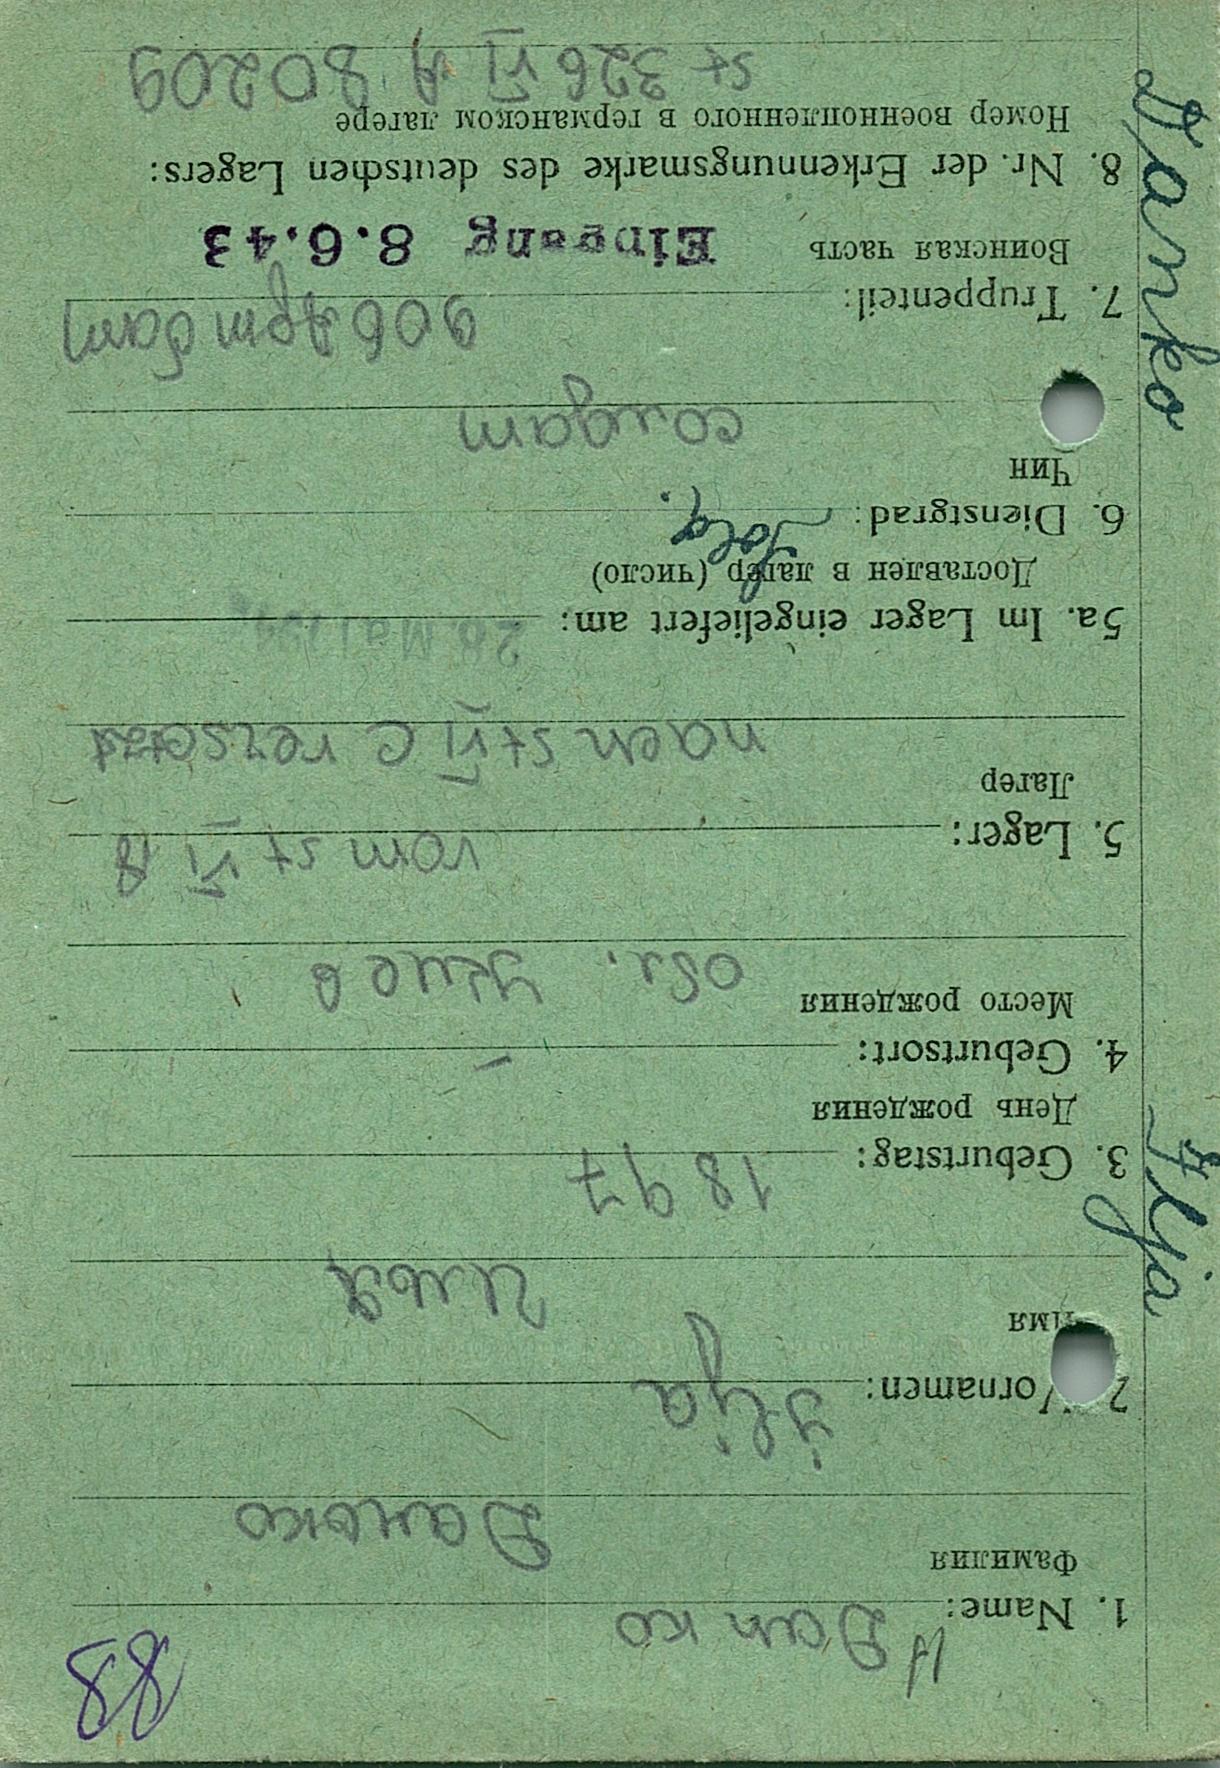 88
1. Name: Danko
Фамилия
Данько
2. Vornamen: Ilja
Имя
Илья
3. Geburtstag: 1897
День рождения
4. Geburtsort: —
Место рождения
обл. Киев
5. Lager: vom st VI B
Лагер
nach st VI C versetzt
5a. Im Lager eingeliefert am: 28 Mai 194
Доставлен в лагер (число)
6. Dienstgrad: Sold.
Чин
солдат
7. Truppenteil: 906 Арт бат
Воинская часть Eingang 8.6.43
8. Nr. der Erkennungsmarke des deutschen Lagers:
Номер военнопленного в германском лагере
st 326 VI A 80209
Danko Ilja